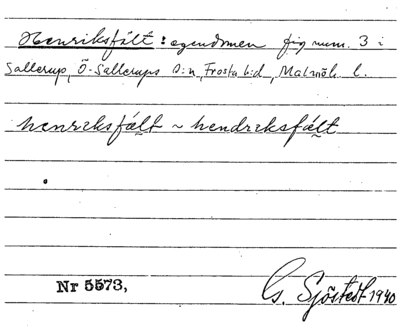 Henriksfält: egendomen fig num. 3 i
Sallerup, Ö-Sallerups s:n, Frosta h:d, Malmöh. l.
henreksfält ~ hendreksfält
Nr 5573,
G. Sjöstedt 1940